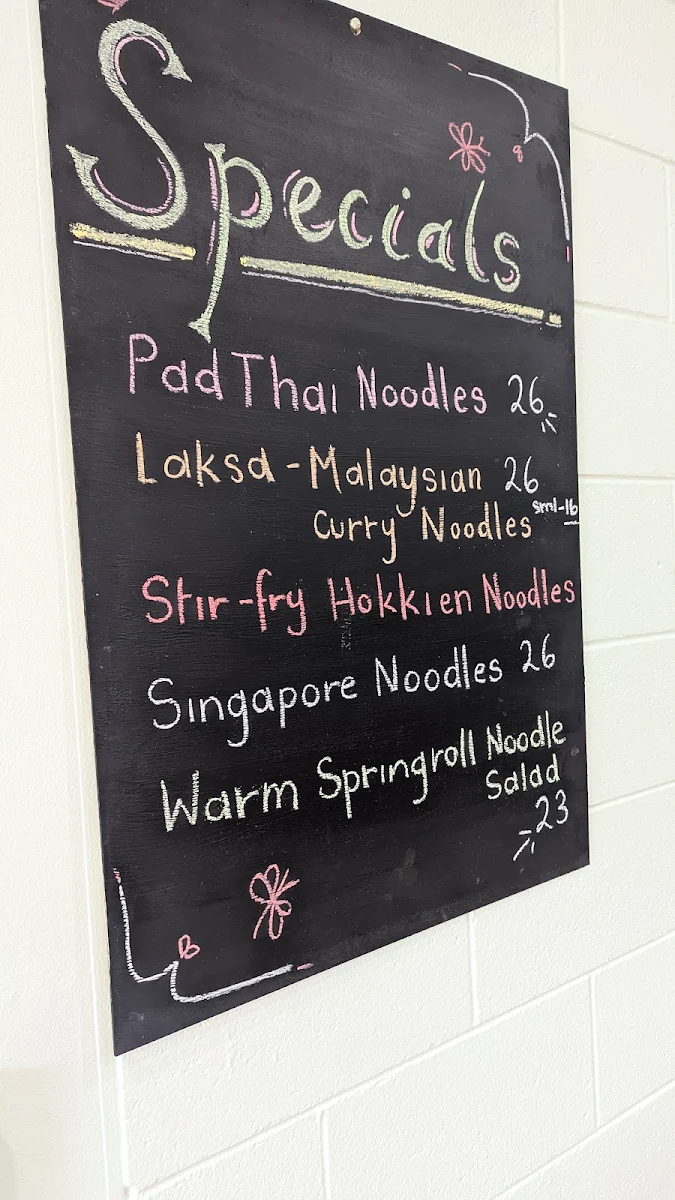 Specials
Pad Thai Noodles 26
Laksa - Malaysian 26
Curry Noodles sml-16
Stir-fry Hokkien Noodles
Singapore Noodles 26
Warm Springroll Noodle
Salad
23